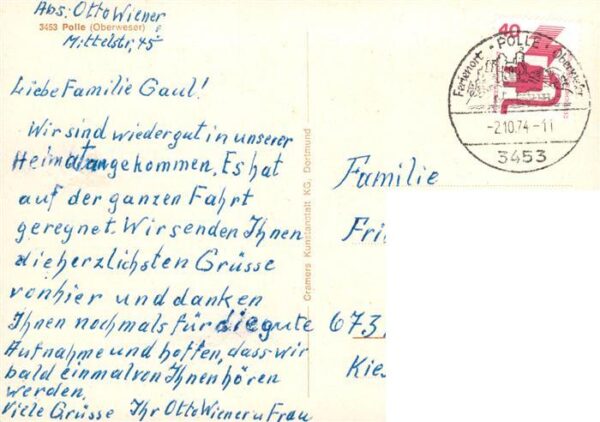 Abs: Otto Wiener
3453 Polle (Oberweser)
Mittelstr, 45
Liebe Familie Gaul!
Wir sind wieder gut in unserer
Heimat angekommen. Es hat
auf der ganzen Fahrt
geregnet. Wir senden Ihnen
die herzlichsten Grüsse
von hier und danken
Ihnen nochmals für die gute
Aufnahme und hoffen, dass wir
bald einmal von Ihnen hören
werden.
Viele Grüsse Ihr Otto Wiener u Frau
Cramers Kunstanstalt KG, Dortmund
40
Ferienort · POLLE · Oberweser
-2.10.74-11
3453
Familie
Fri
673
Kies